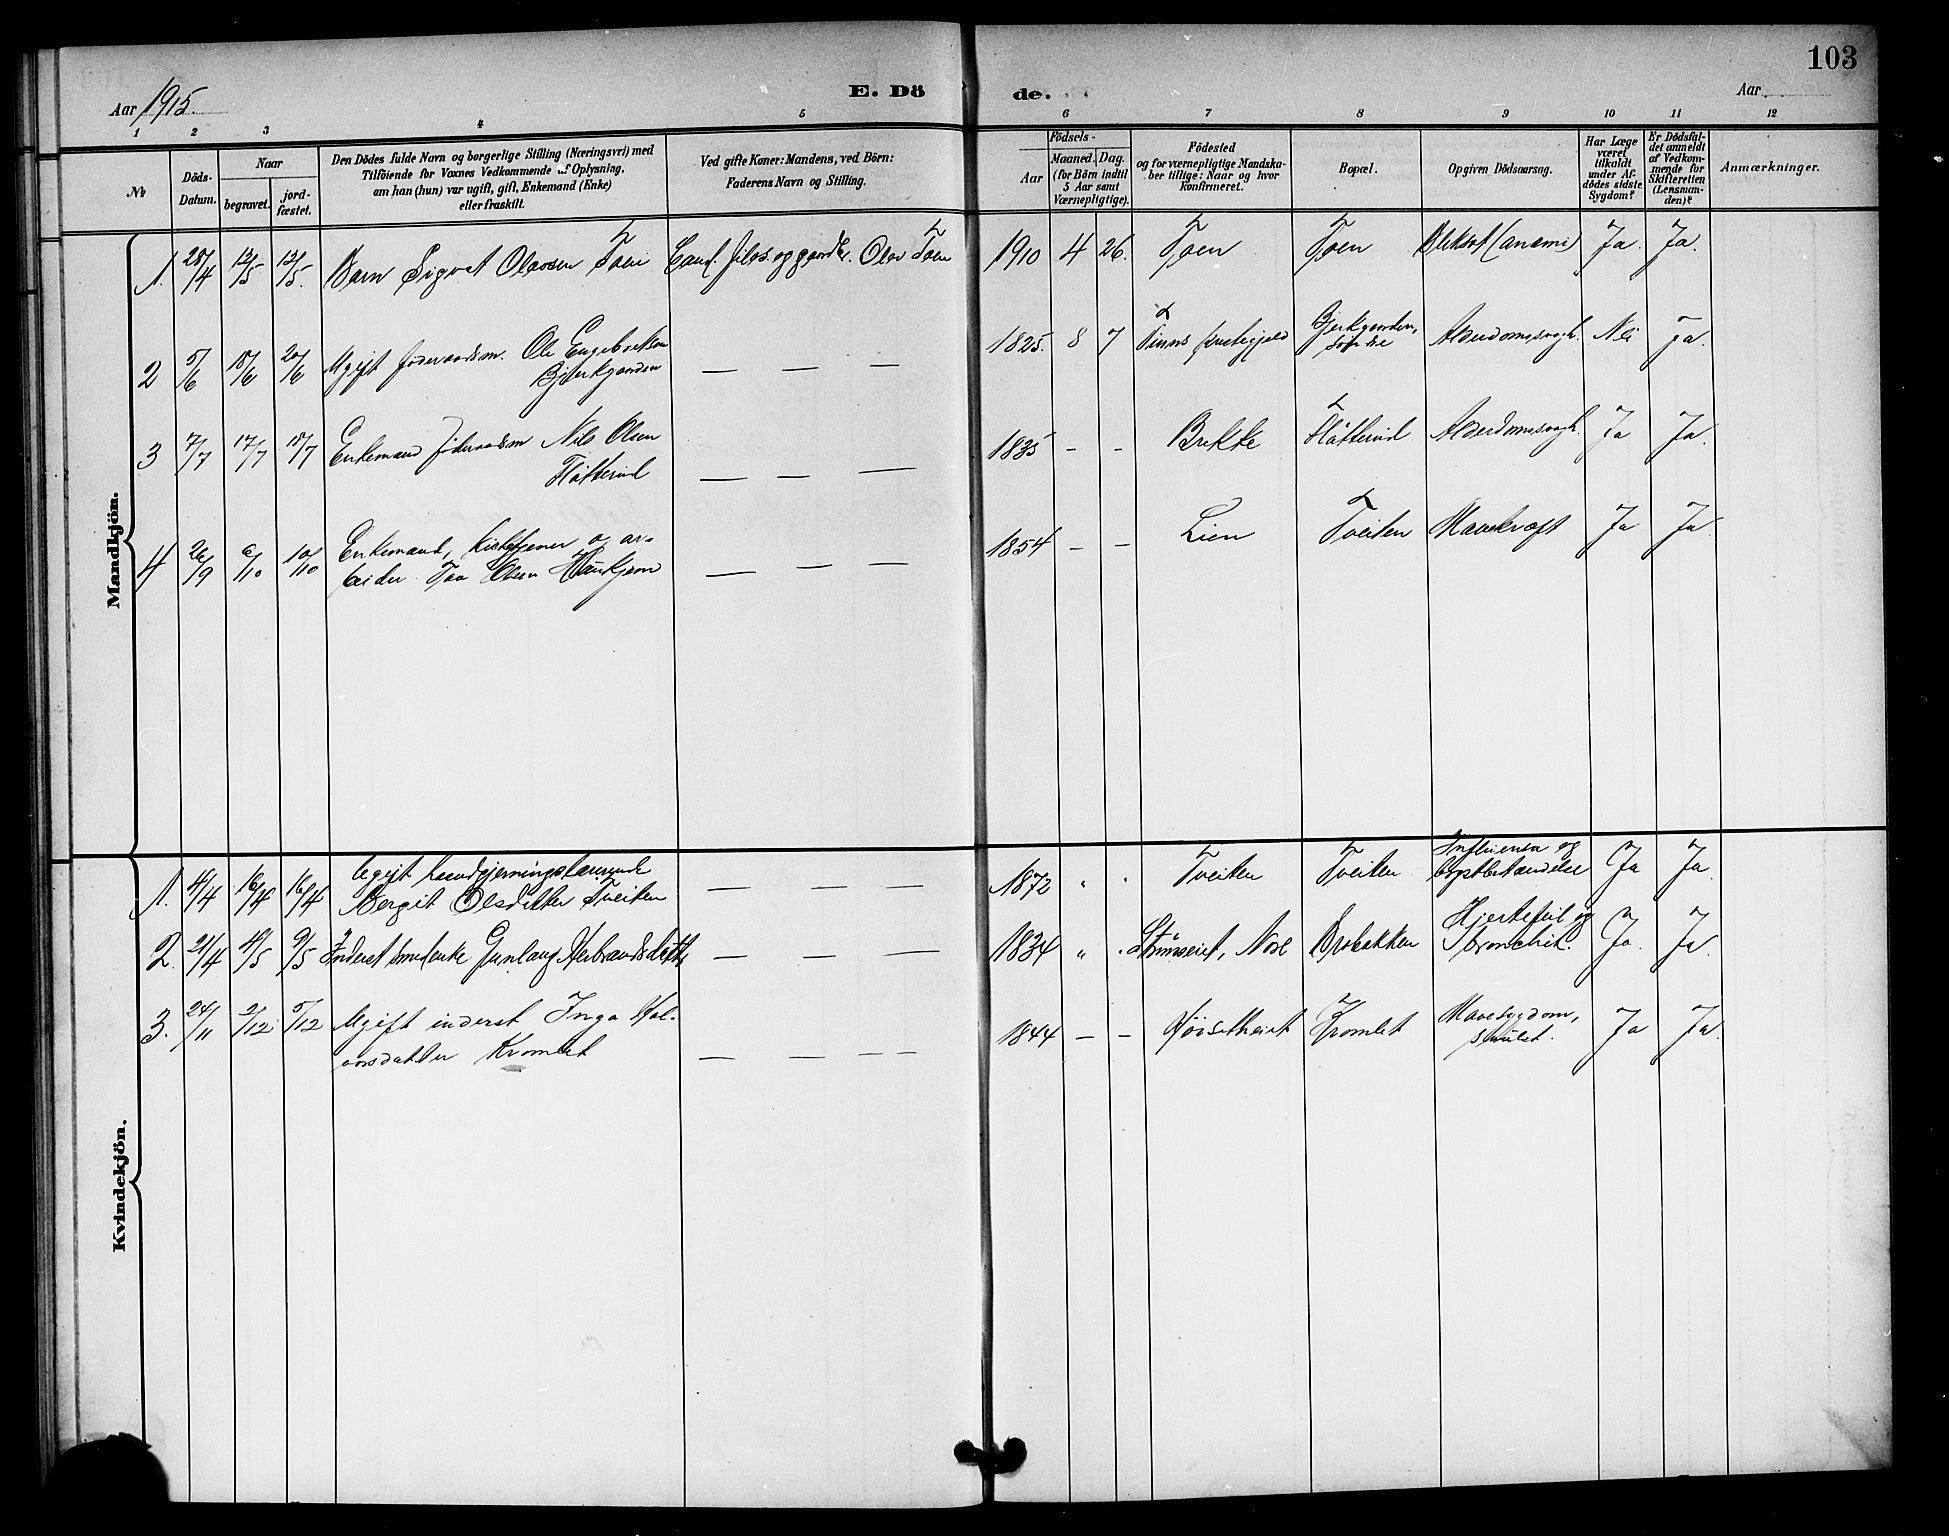 103
Aar 1915.
E. Dö de.
Aar
1 2 3 4 5 6 7 8 9 10 11 12
№
Döds-Datum.
Naar
begravet.
jord-fæstet.
Den Dödes fulde Navn og borgerlige Stilling (Næringsvei) med
Tilföiende for Voxnes Vedkommende af Oplysning,
om han (hun) var ugift, gift, Enkemand (Enke)
eller fraskilt.
Ved gifte Koner: Mandens, ved Börn:
Faderens Navn og Stilling.
Födsels-
Aar
Maaned. Dag.
(for Börn indtil
5 Aar samt
Værnepligtige).
Födested
og for værnepligtige Mandska-
ber tillige: Naar og hvor
konfirmeret.
Bopæl.
Opgiven Dödsaarsag.
Har Læge
været
tilkaldt
under Af-
dödes sidste
Sygdom?
Er Dödsfal-
det anmeldt
af Vedkom-
mende for
Skifteretten
(Lensman-
den)?
Anmærkninger.
Mandkjön.
1. 28/4 12/5 13/5. Barn Sigvat Olavsen Toen Cand. filos. og gaardbr. Olav Toen 1910 4 26. Toen Toen Bleksot (anæmi) Ja. Ja.
2 5/6 18/6 20/6 Ugift föderaadsm. Ole Engebretsen
Bjerkgaarden — — — 1825. 8 7 Tinns prestegjeld Bjerkgaarden,
söndre Alderdomssvagh. Nei Ja.
3 7/7 17/7 18/7 Enkemand föderaadsm Nils Olsen
Flåtterud — — — 1835 - - Brekke Flåtterud Alderdomssvagh. Ja Ja.
4 26/9 6/10 10/10 Enkemand, kirketjener og ar-
beider Olsen — — — 1854 - - Lien Tveiten Mavekræft Ja Ja.
Kvindekjön.
1. 4/4 16/4 16/4 Ugift haandgjerningslærerinde
Bergit Olsdatter Tveiten — — — 1872 " . Tveiten Tveiten Influensa og
brystbetændelse Ja Ja.
2. 21/4 4/5 9/5 Inderst smedenke Gunlaug Herbrandsdatter — — — 1834 " . Strömseiet, Nore Brobakken Hjertefeil og
bronchit. Ja. Ja.
3. 24/11 2/12 5/12 Ugift inderst Inga Hal-
vorsdatter Kromlet — — — — 1844 - - Kromlet Mavesygdom,
svulst. Ja Ja.